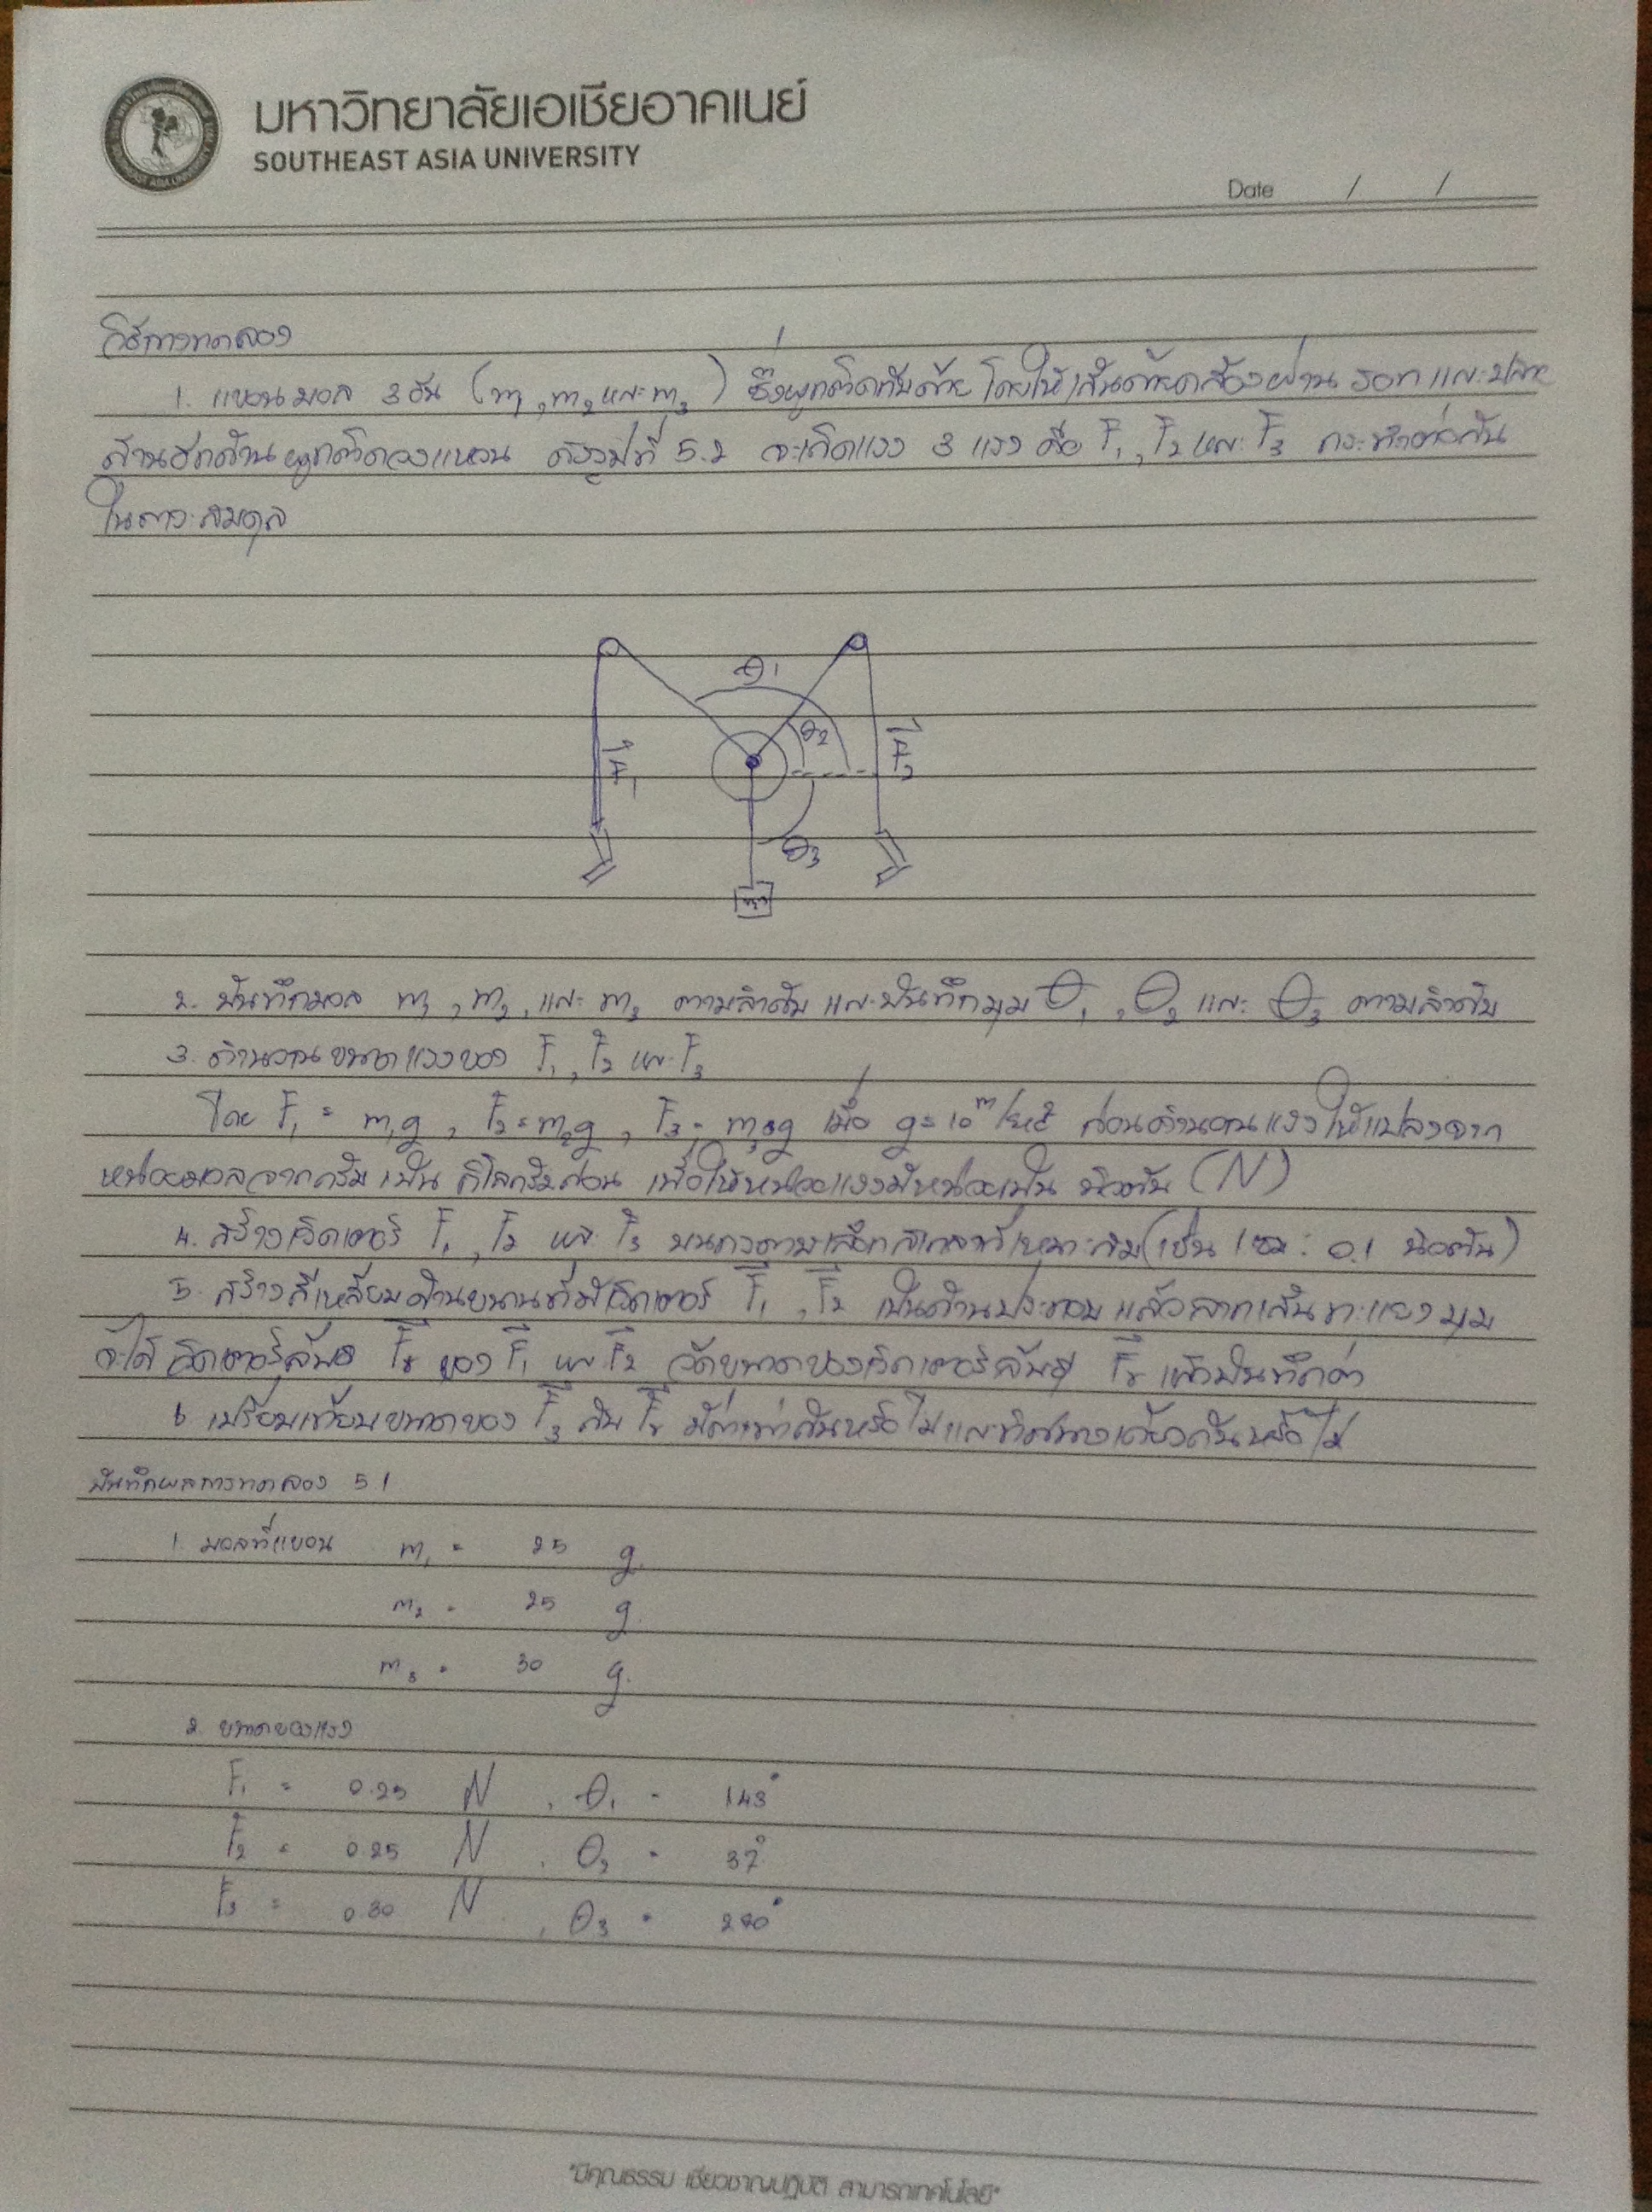 มหาวิทยาลัยเอเชียอาคเนย์
SOUTHEAST ASIA UNIVERSITY
Date / /
วิธีการทดลอง
1. แขวนมวล 3 อัน (m1, m2 และ m3) ซึ่งผูกติดกับด้าย โดยให้เส้นด้ายคล้องผ่าน รอก และปลาย
ด้านอีกด้านผูกติดวงแหวน ดังรูปที่ 5.2 จะเกิดแรง 3 แรง คือ F1, F2 และ F3 กระทำต่อกัน
ในภาวะสมดุล
θ1
θ2
F1
F2
θ3
m3
2. บันทึกมวล m1, m2, และ m3 ตามลำดับ และบันทึกมุม θ1, θ2 และ θ3 ตามลำดับ
3. คำนวณขนาดแรงของ F1, F2 และ F3
โดย F1 = m1g, F2 = m2g, F3 = m3g เมื่อ g = 10 m/s² ก่อนคำนวณแรงให้แปลงจาก
หน่วยมวลจากกรัม เป็น กิโลกรัมก่อน เพื่อให้หน่วยแรงมีหน่วยเป็น นิวตัน (N)
4. สร้างเวกเตอร์ F1, F2 และ F3 บนกระดาษเลือกสเกลที่เหมาะสม (เช่น 1 ซม : 0.1 นิวตัน)
5. สร้างสี่เหลี่ยมด้านขนานที่มีเวกเตอร์ F1, F2 เป็นด้านประกอบ แล้วลากเส้นทะแยงมุม
จะได้เวกเตอร์ลัพธ์ Fr ของ F1 และ F2 วัดขนาดของเวกเตอร์ลัพธ์ Fr แล้วบันทึกค่า
6 เปรียบเทียบขนาดของ F3 กับ Fr มีค่าเท่ากันหรือไม่ และทิศทางเดียวกันหรือไม่
บันทึกผลการทดลอง 5.1
1. มวลที่แขวน m1 = 25 g.
m2 = 25 g.
m3 = 30 g.
2. ขนาดของแรง
F1 = 0.25 N, θ1 = 143°
F2 = 0.25 N, θ2 = 37°
F3 = 0.30 N, θ3 = 270°
"มีคุณธรรม เชี่ยวชาญปฏิบัติ สามารถเทคโนโลยี"